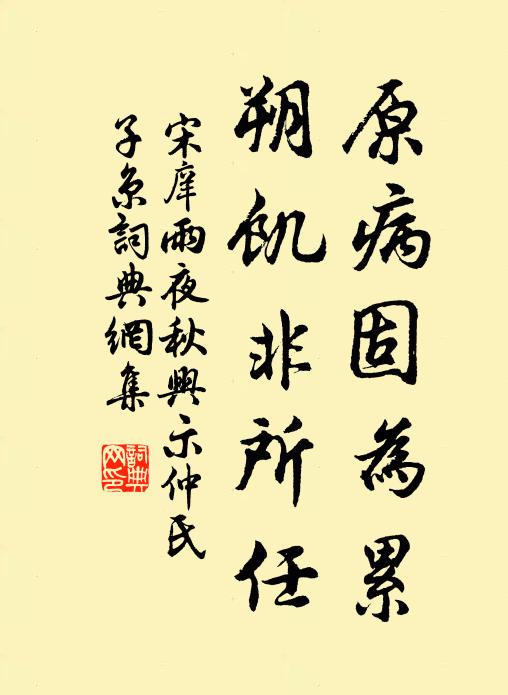 原病固為累
朔飢非所任
宋庠雨夜秋興示仲氏
子京詞典網集
詞典
网印